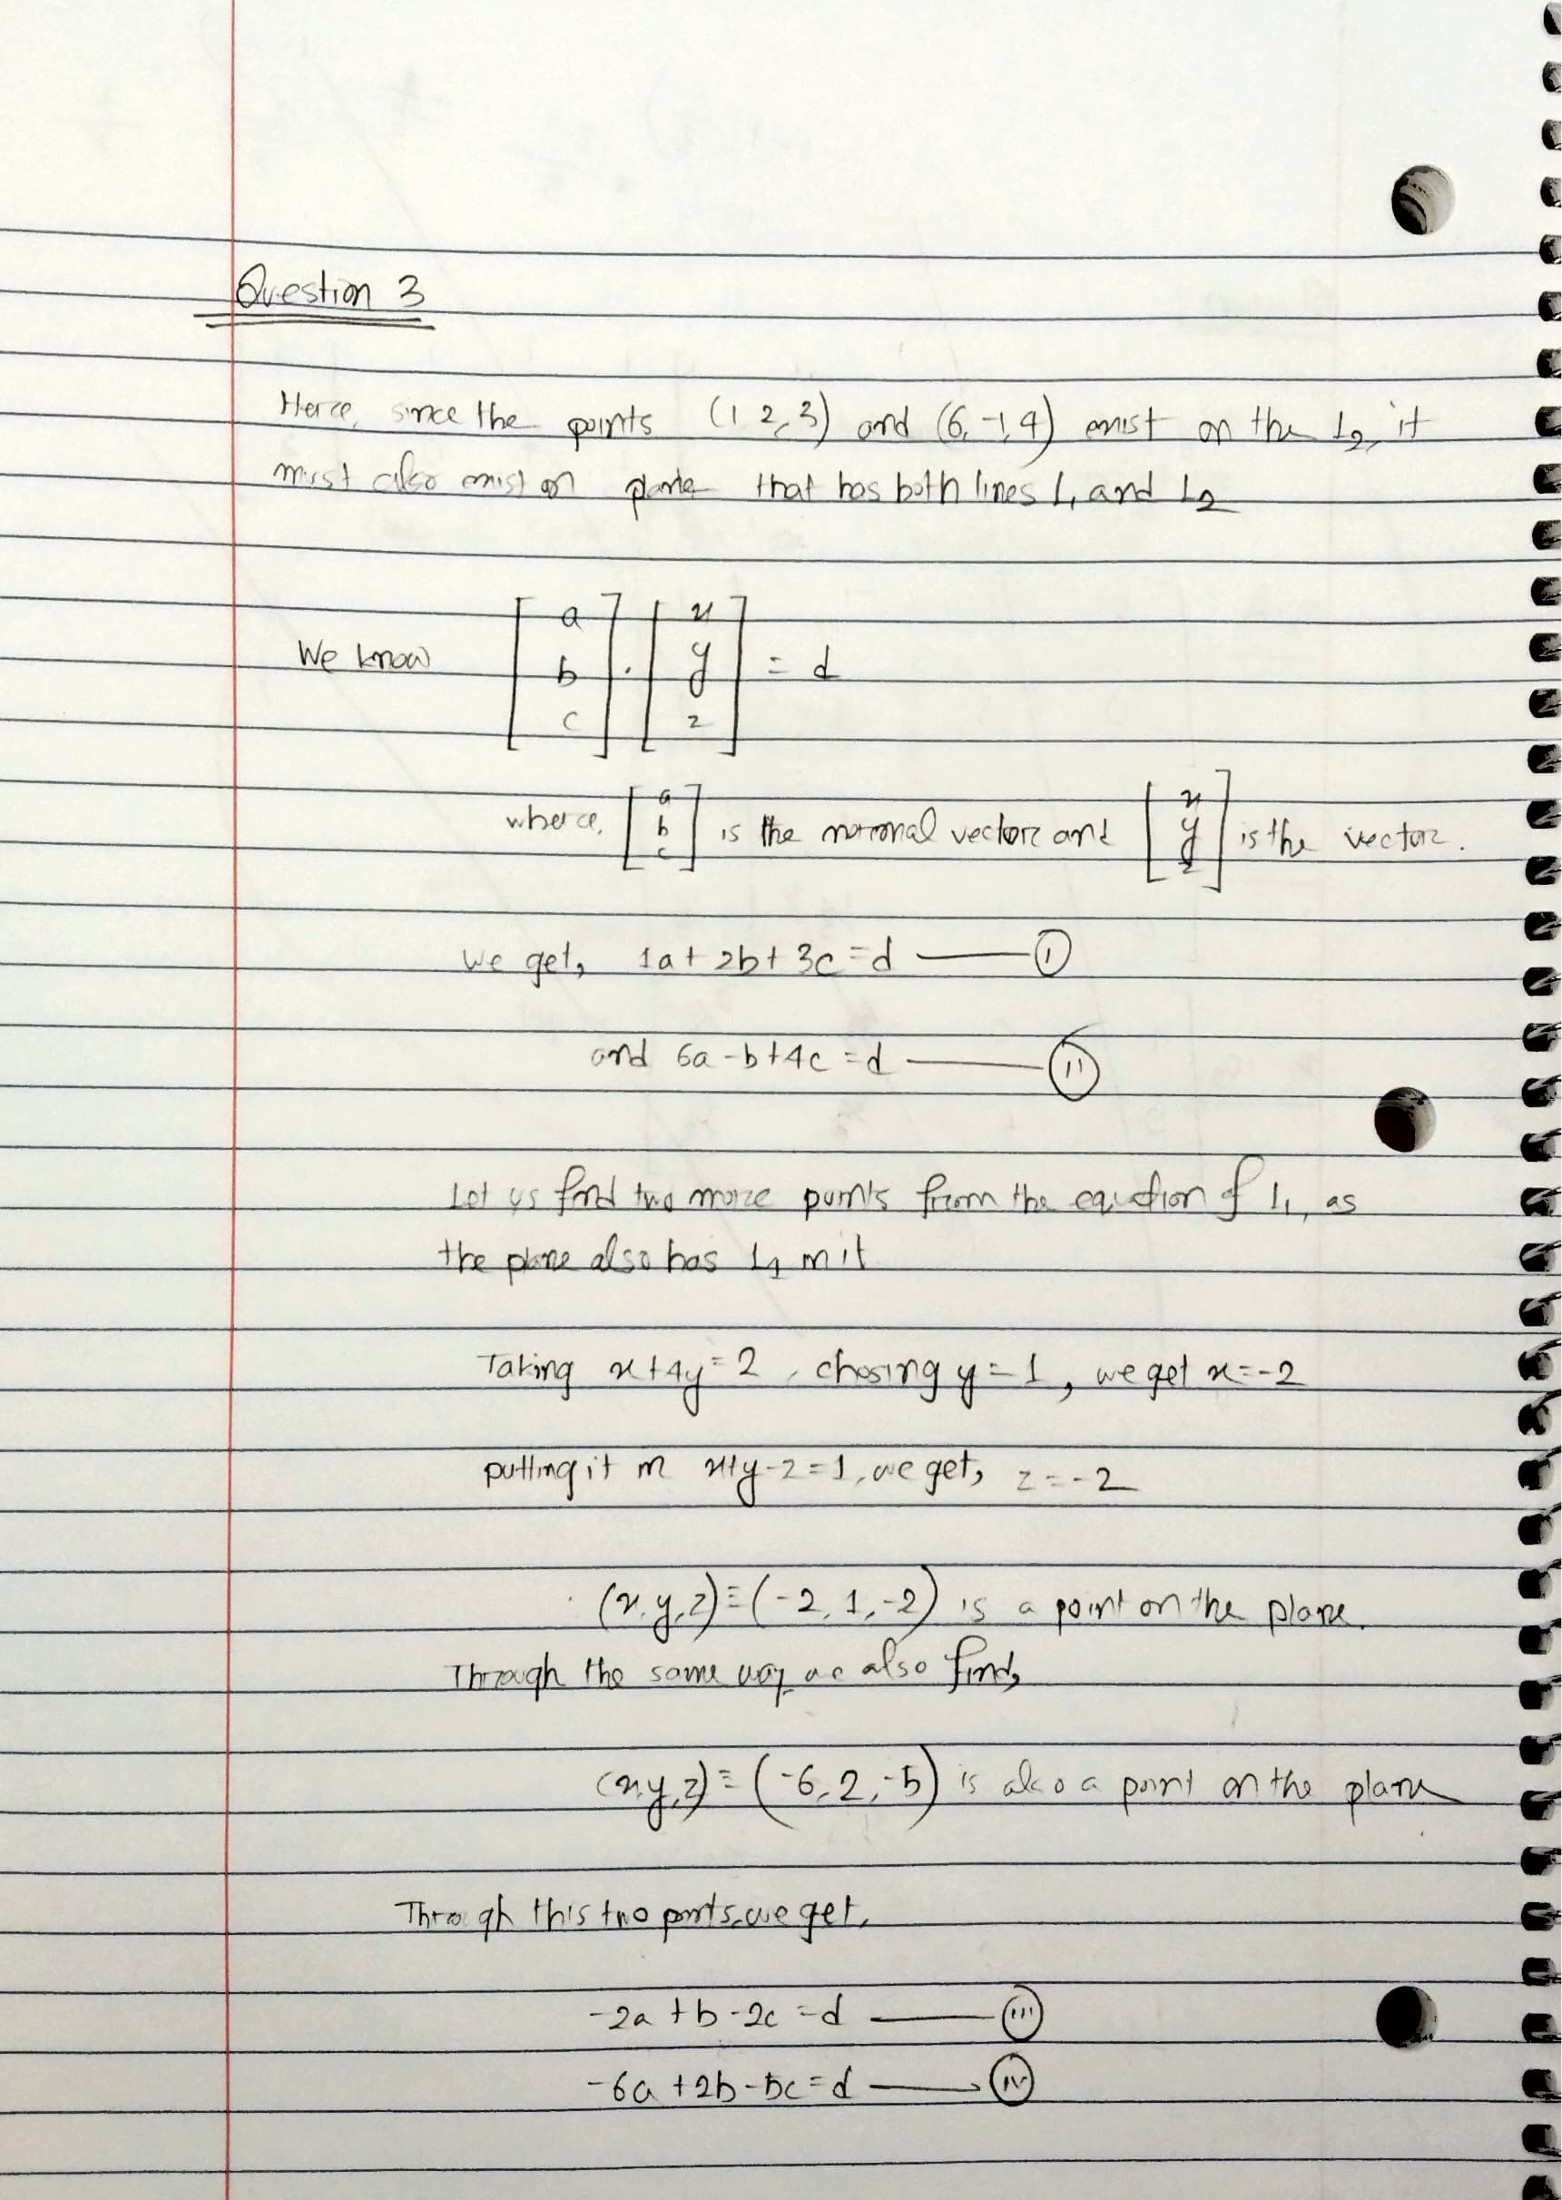 Question 3
Here, since the points (1, 2, 3) and (6, -1, 4) exist on the L2, it
must also exist on plane that has both lines L1 and L2
We know [a b c] . [x y z] = d
where, [a b c] is the normal vector and [x y z] is the vector.
we get, 1a + 2b + 3c = d —— (i)
and 6a - b + 4c = d —— (ii)
Let us find two more points from the equation of L1, as
the plane also has L1 in it
Taking x + 4y = 2, chosing y = 1, we get x = -2
putting it in x+y-z=1, we get, z = -2
(x, y, z) ≡ (-2, 1, -2) is a point on the plane.
Through the same way we also find,
(x, y, z) ≡ (-6, 2, -5) is also a point on the plane
Through this two points, we get,
-2a + b - 2c = d —— (iii)
-6a + 2b - 5c = d —— (iv)